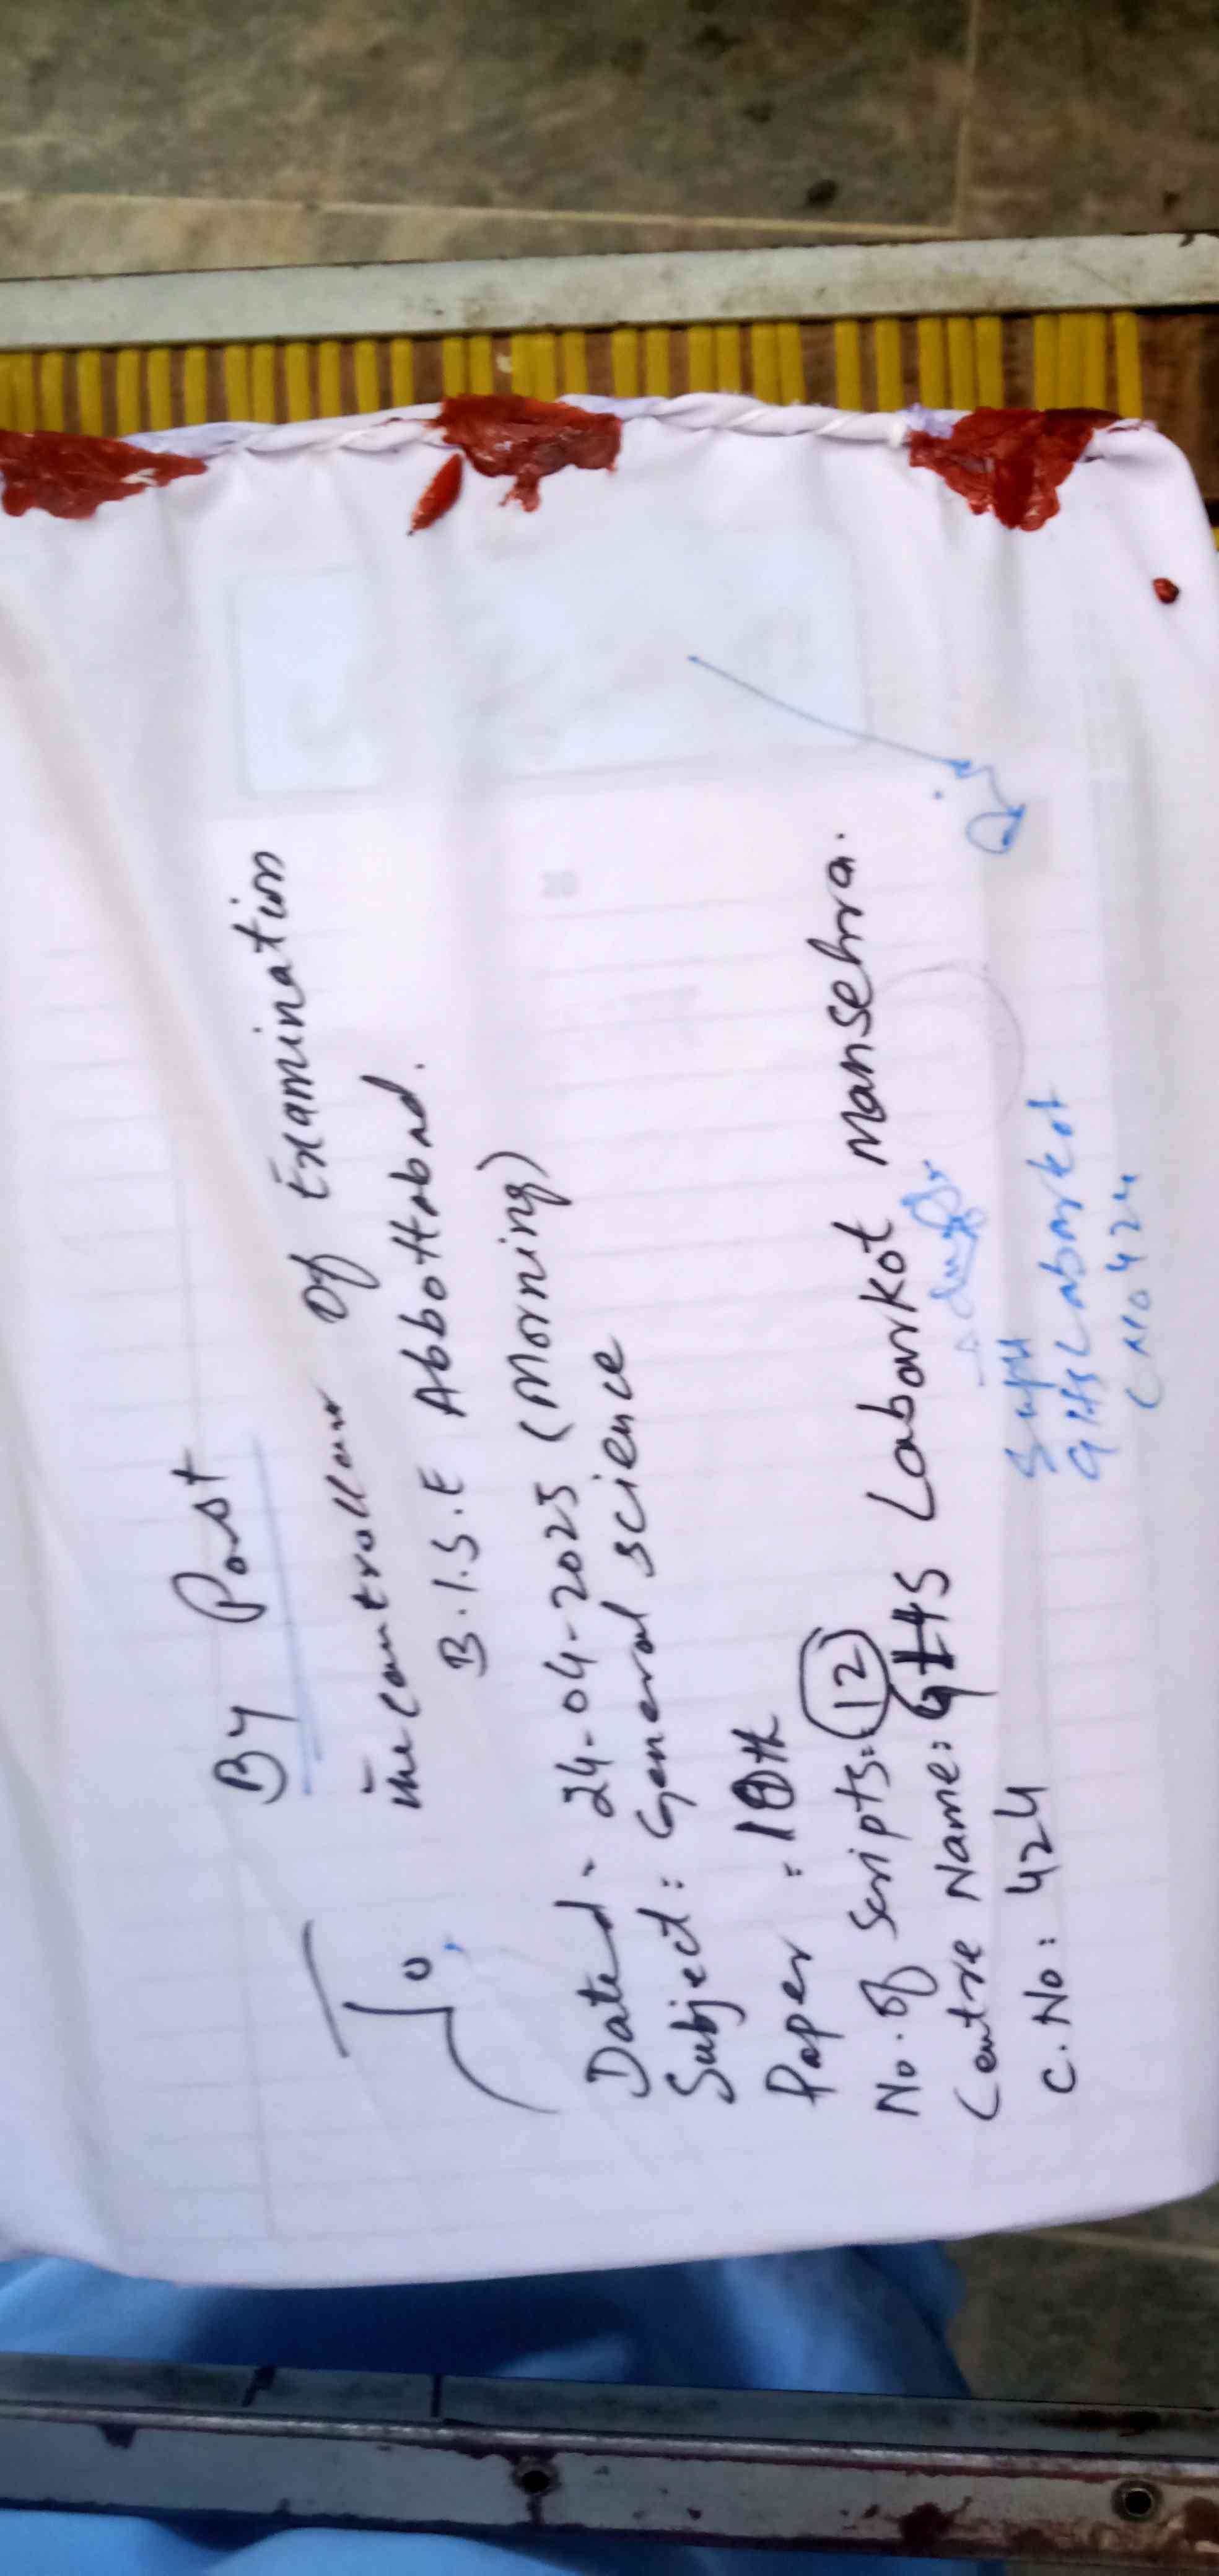 By Post
To,
The Controller Of Examination
B.I.S.E Abbottabad.
Dated - 24-04-2025 (Morning)
Subject: General science
Paper : 10th
No. of scripts: 12
Centre Name: GHS Labarkot Mansehra.
C. No: 424
Supdt
GHS Labarkot
C No 424